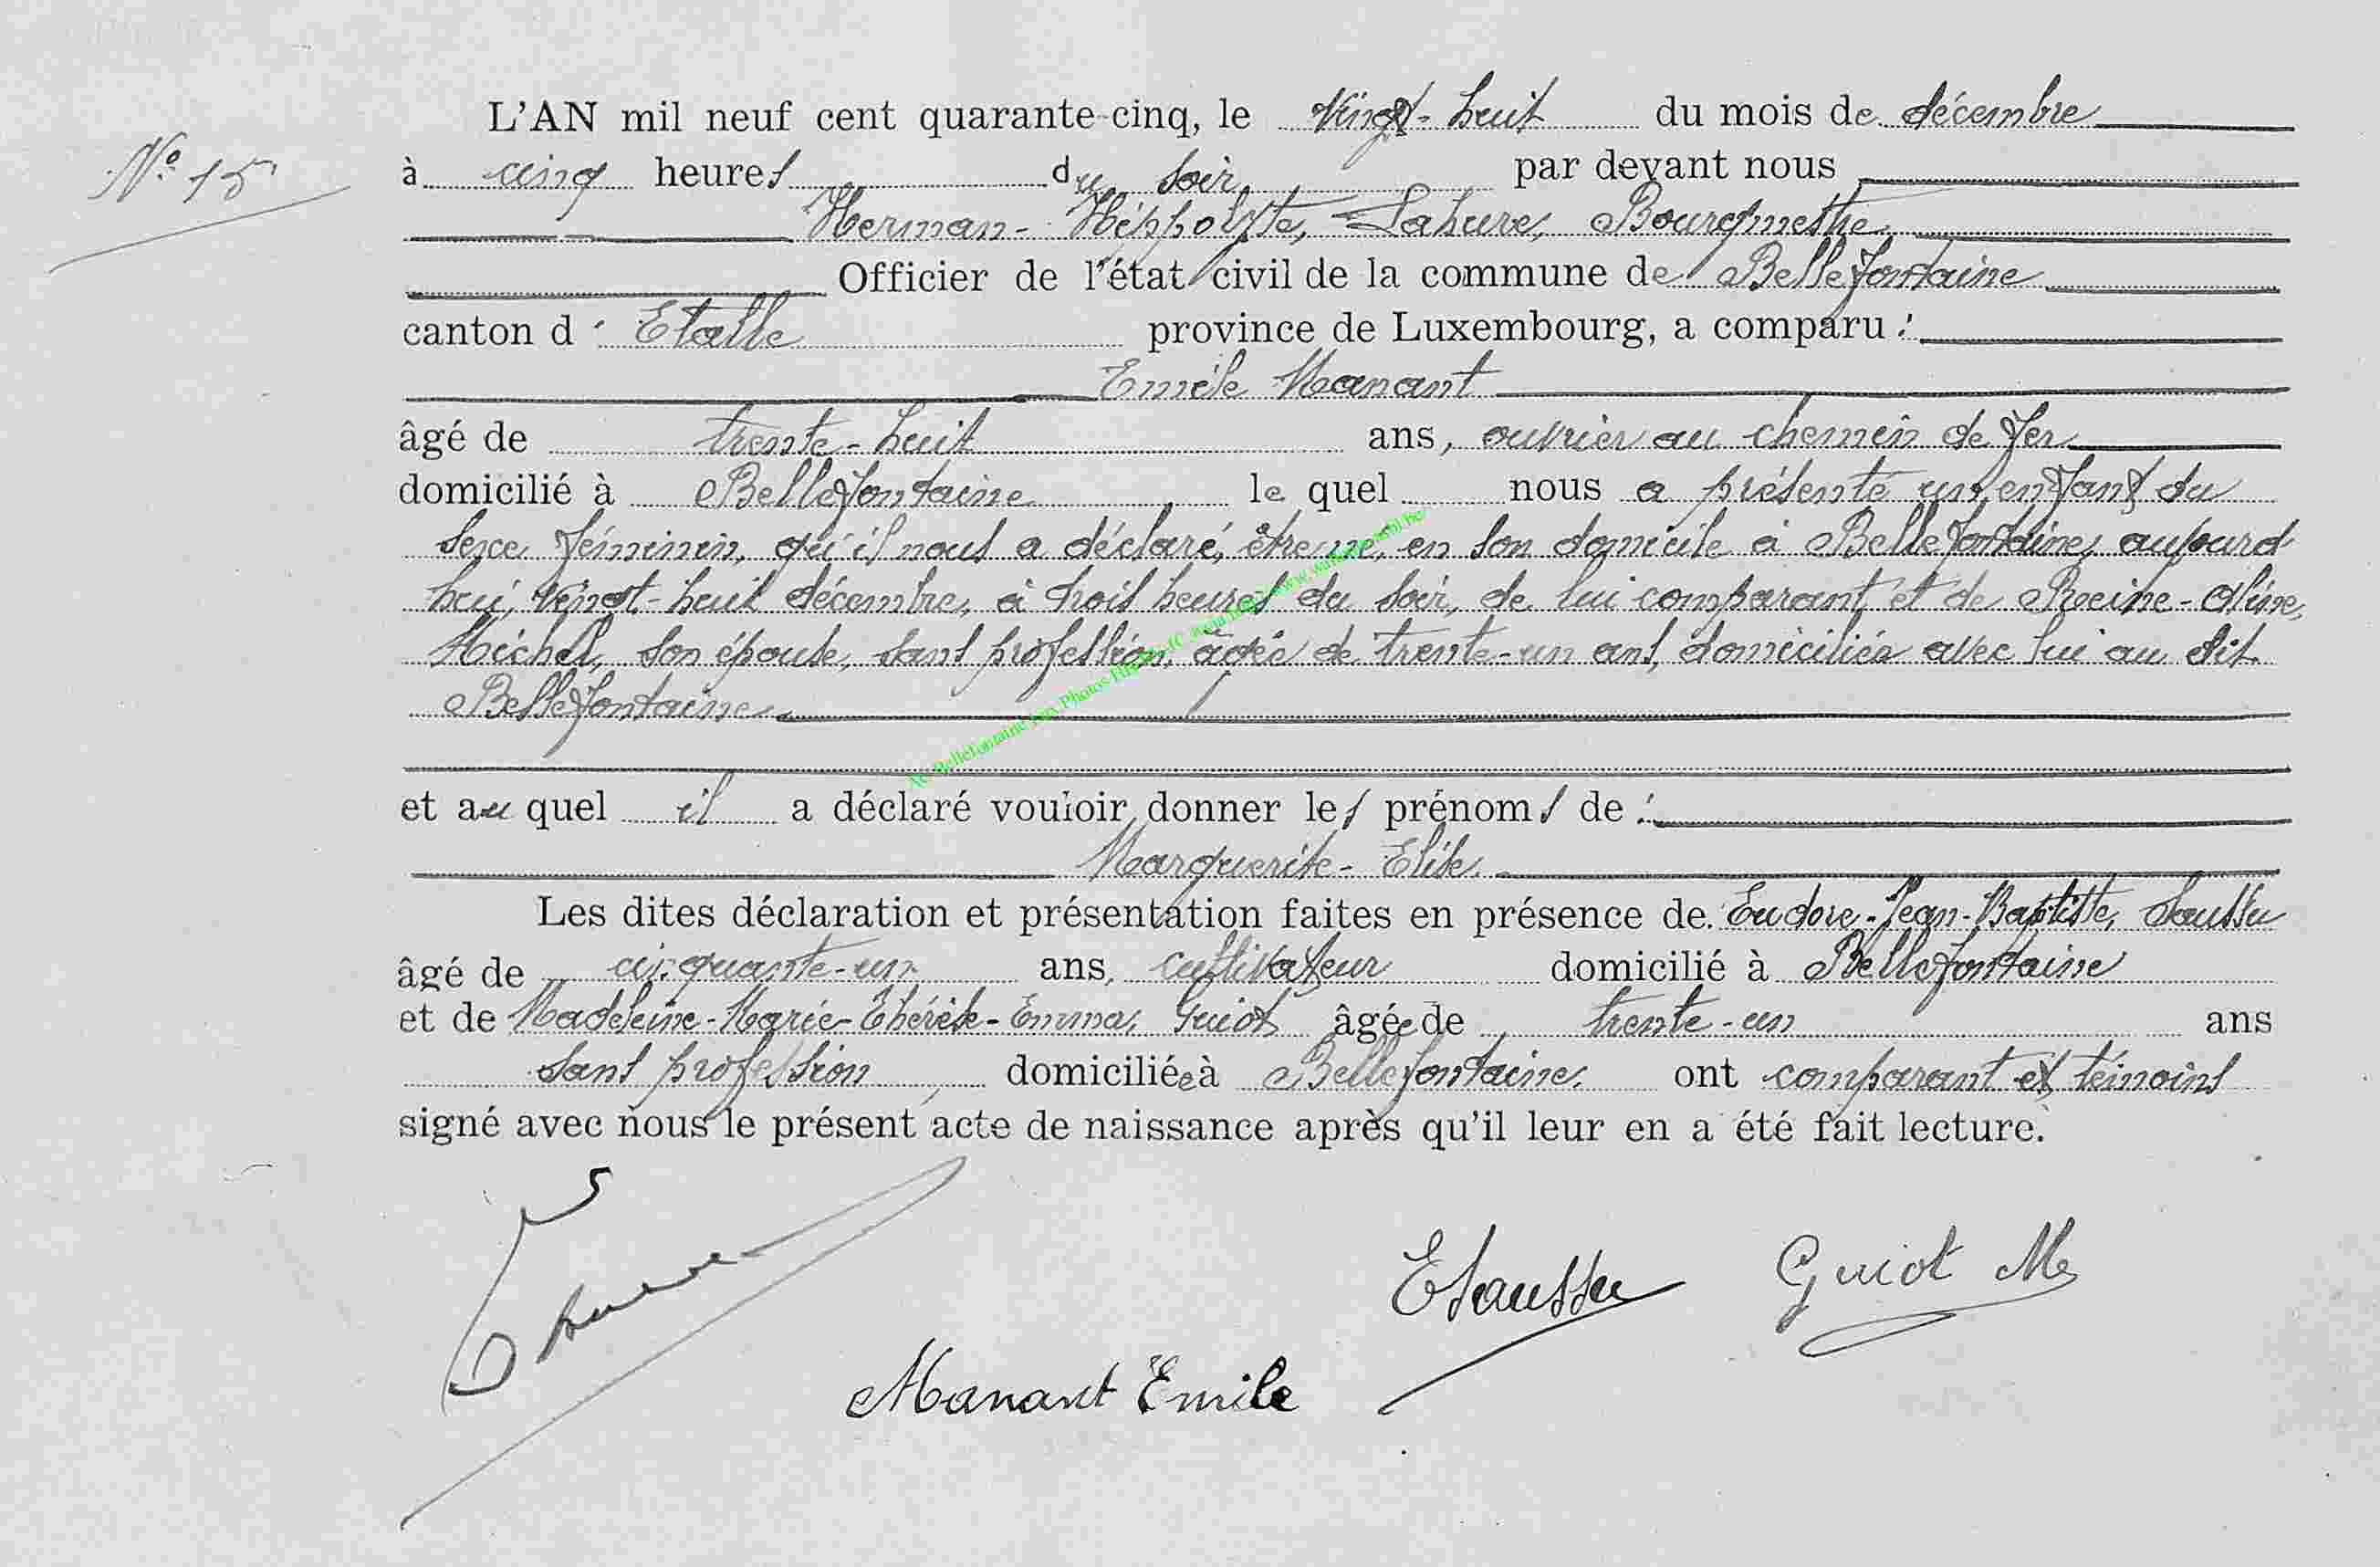 L'AN mil neuf cent quarante-cinq, le vingt-huit du mois de décembre
N° 15
à cinq heures du soir par devant nous
Herman-Hippolyte, Lahure, Bourgmestre
Officier de l'état civil de la commune de Bellefontaine
canton d'Etalle province de Luxembourg, a comparu :
Emile Manant
âgé de trente-huit ans, ouvrier au chemin de fer
domicilié à Bellefontaine le quel nous a présenté un enfant du
sexe féminin, qu'il nous a déclaré, être né, en son domicile à Bellefontaine, aujourd
hui, vingt-huit décembre, à trois heures du soir, de lui comparant et de Reine-Aline,
Michel, son épouse, sans profession, âgée de trente-un ans, domiciliée avec lui au dit
Bellefontaine
et au quel il a déclaré vouloir donner les prénoms de :
Marguerite-Elise
Les dites déclaration et présentation faites en présence de Eudore-Jean-Baptiste, Saussu
âgé de cinquante-un ans, cultivateur domicilié à Bellefontaine
et de Madeleine-Marie-Thérèse-Emma, Guiot âgée de trente-un ans
sans profession, domiciliée à Bellefontaine ont comparant et témoins
signé avec nous le présent acte de naissance après qu'il leur en a été fait lecture.
ESaussu Guiot M
Manant Emile